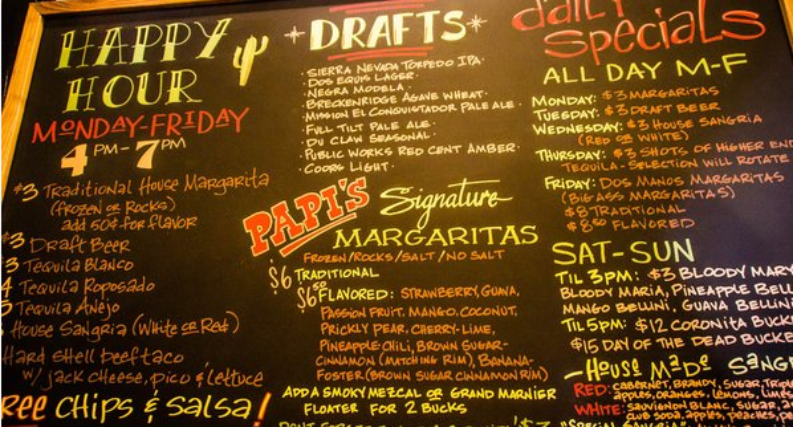 HAPPY
HOUR
MONDAY-FRIDAY
4 PM - 7 PM
$3 Traditional House Margarita
(frozen or Rocks)
add 50¢ for flavor
$3 Draft Beer
3 Tequila Blanco
4 Tequila Roposado
5 Tequila Anejo
House Sangria (White or Red)
Hard shell beef taco
w/ jack cheese, pico & lettuce
Ree CHips & Salsa!
DRAFTS
· Sierra Nevada Torpedo IPA ·
· Dos Equis Lager ·
· Negra Modela ·
· Breckenridge Agave Wheat ·
· Mission El Conquistador Pale Ale ·
· Full Tilt Pale Ale ·
· Du Claw Seasonal ·
· Public Works Red Cent Amber ·
· Coors Light ·
PAPI'S Signature
MARGARITAS
FROZEN/ROCKS/SALT/NO SALT
$6 TRADITIONAL
$6.50 FLAVORED: STRAWBERRY, GUAVA,
PASSION FRUIT, MANGO, COCONUT,
PRICKLY PEAR, CHERRY-LIME,
PINEAPPLE-CHILI, BROWN SUGAR-
CINNAMON (MATCHING RIM), BANANA-
FOSTER (BROWN SUGAR CINNAMON RIM)
ADD A SMOKY MEZCAL OR GRAND MARNIER
FLOATER FOR 2 BUCKS
daily
Specials
ALL DAY M-F
MONDAY: $3 MARGARITAS
TUESDAY: $3 DRAFT BEER
WEDNESDAY: $3 HOUSE SANGRIA
(RED OR WHITE)
THURSDAY: $3 SHOTS OF HIGHER END
TEQUILA - SELECTION WILL ROTATE
FRIDAY: DOS MANOS MARGARITAS
(BIG ASS MARGARITAS)
$8 TRADITIONAL
$8.50 FLAVORED
SAT-SUN
TIL 3PM: $3 BLOODY MARY
BLOODY MARIA, PINEAPPLE BELL
MANGO BELLINI, GUAVA BELLINI
TIL 5PM: $12 CORONITA BUCK
$15 DAY OF THE DEAD BUCKE
- House Made Sang
RED: CABERNET, BRANDY, SUGAR, TRIPL
apples, oranges, lemons, limes
WHITE: SAUVIGNON BLANC, SUGAR,
club soda, apples, peaches,